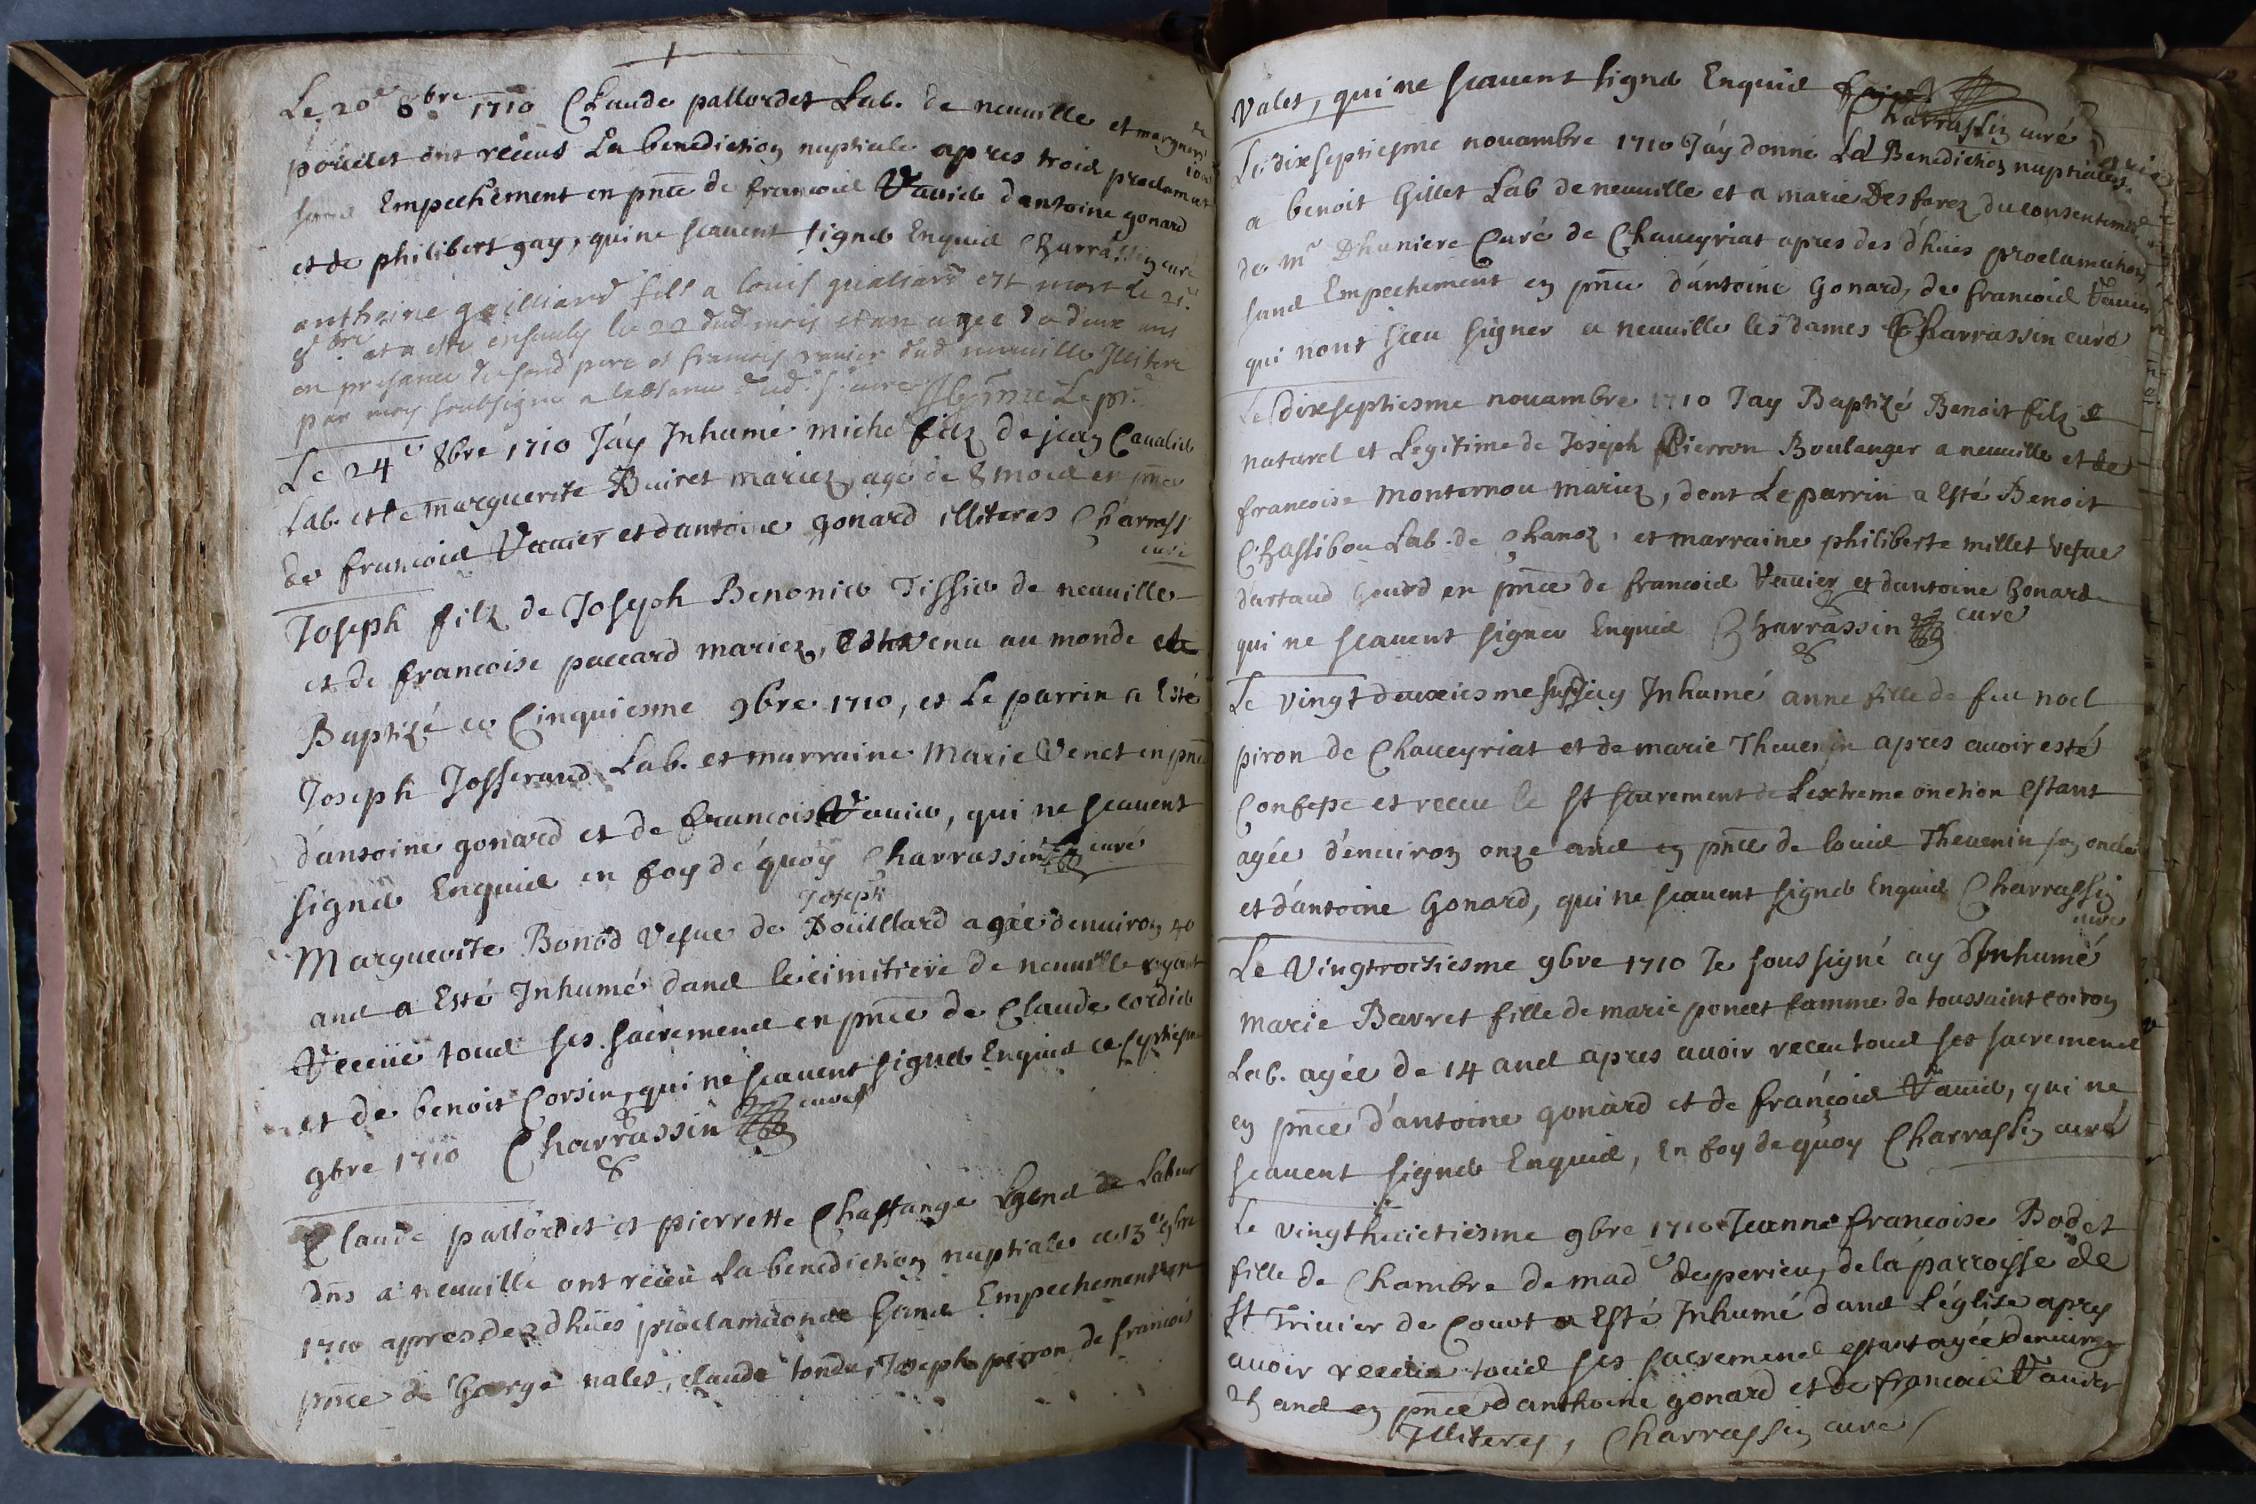 Le 20e 8bre 1710 Claude pallordet Lab. de neuuille et marguerite
poncet ont receus La benediction nuptiale apres trois proclamations
sans Empechement en pnce de francois Vauier dantoine gonard
et de philibert gay, qui ne scauent signer Enquis Charrassin curé
anthoine gailliard fils a louis gualiard est mort le 21e
8bre et a esté enseuely le 22 dud mois et an agee de deux ans
en presance dud pere et francois vauier dud neuuille Illiteré
par moy soubsigné a labsence dud. s. curé
Le 24e 8bre 1710 Jáy Inhumé miché filz de jean Caualier
Lab. et de marguerite Buiret mariez, agé de 8 mois en pnce
de francois Vauier et dantoine gonard illiteres Charrassin
curé
Joseph filz de Joseph Benonier Tissier de neuuille
et de francoise paccard mariez, est venu au monde et
Baptizé ce Cinquiesme 9bre 1710, et Le parrin a Esté
Joseph Josserand Lab. et marraine Marie Venet en pnce
d'antoine gonard et de francois Vauier, qui ne scauent
signer Enquis en foy de quoy Charrassin curé
Joseph
Marguerite Bonod Vefue de Doüillard agée denuiron 40
ans a Esté Inhumé dans le cimitiere de neuuille ayant
receüe tous ses sacremens en pnce de Claude cordier
et de benoit Corsin, qui ne scauent signer Enquis ce septiesme
9bre 1710 Charrassin curé
Claude pallordet et pierrette Chassange Lgens de Labeur
dns a neuuille ont receu La benediction nuptiale ce 13e 9bre
1710 apres dez dhües proclamaons sans Empechement en
pnce de George nales, claude tondu, Joseph peron, de francois
Valet, qui ne scauent signer Enquis
Charrassin curé
Le dixseptiesme nouambre 1710 Jáy donné La Benediction nuptiale
a benoit Gillet Lab de neuuille et a marie Desfarez du consentement
de mr Dhuniere Curé de Chaueyriat apres des dhües proclamations
sans Empechement en pnce dántoine Gonard, de francois Vauier
qui nont sceu signer a neuuille les dames Charrassin curé
Le dixseptiesme nouambre 1710 Jay Baptizé Benoit filz
naturel et Legitime de Joseph Pierron Boulanger a neuuille et de
francoise Monternou mariez, dont Le parrin a Esté Benoit
Chaslibou Lab. de Chanoz, et marraine philiberte millet vefue
dartaud en pnce de francois Vauier et dantoine Gonard
qui ne scauent signer Enquis Charrassin curé
Le vingt deuxiesme Jay Inhumé anne fille de feu noel
piron de Chaueyriat et de marie Theuenin apres auoir esté
Confesse et receu le st sacrement de Lextreme onction estant
agée d'enuiron onze ans en pnce de louis Theuenin son oncle
et d'antoine Gonard, qui ne scauent signer Enquis Charrassin
curé
Le Vingtroisiesme 9bre 1710 Je soussigné ay Inhumé
Marie Barret fille de marie poncet famme de toussaint coiron
Lab. agée de 14 ans apres auoir receu tous ses sacremens
en pnce d'antoine gonard et de francois Vauier, qui ne
scauent signer Enquis, En foy de quoy Charrassin curé
Le vingthuictiesme 9bre 1710 Jeanne francoise Bodet
fille de Chambre de made deperieu, de la parroisse de
St Triuier de Court a Esté Inhumé dans L'église apres
auoir receüe tous ses sacremens estant agée denuiron
25 ans en pnce d'anthoine gonard et de francois Vauier
Illiteres, Charrassin curé